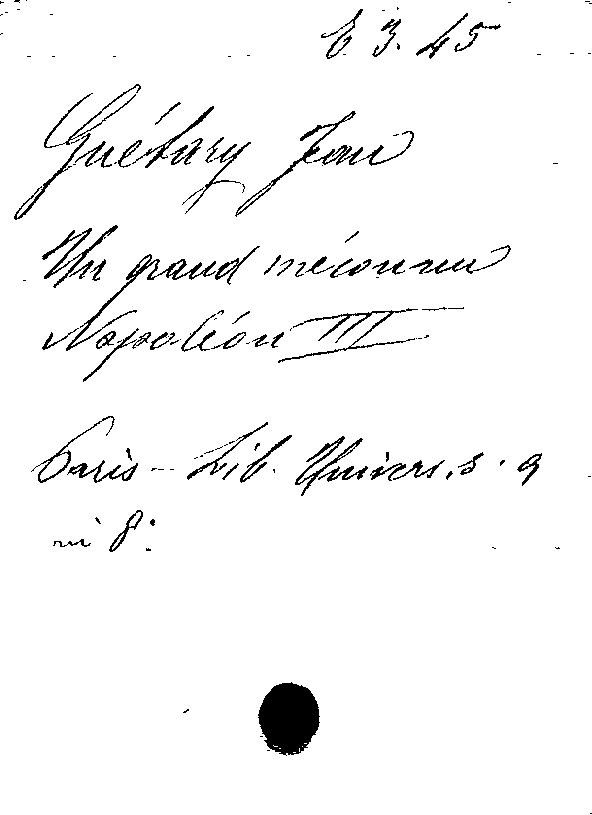 E 3. 45
Guétary Jean
Un grand méconnu
Napoléon III
Paris - Lib. Univers. s. a
in 8°.